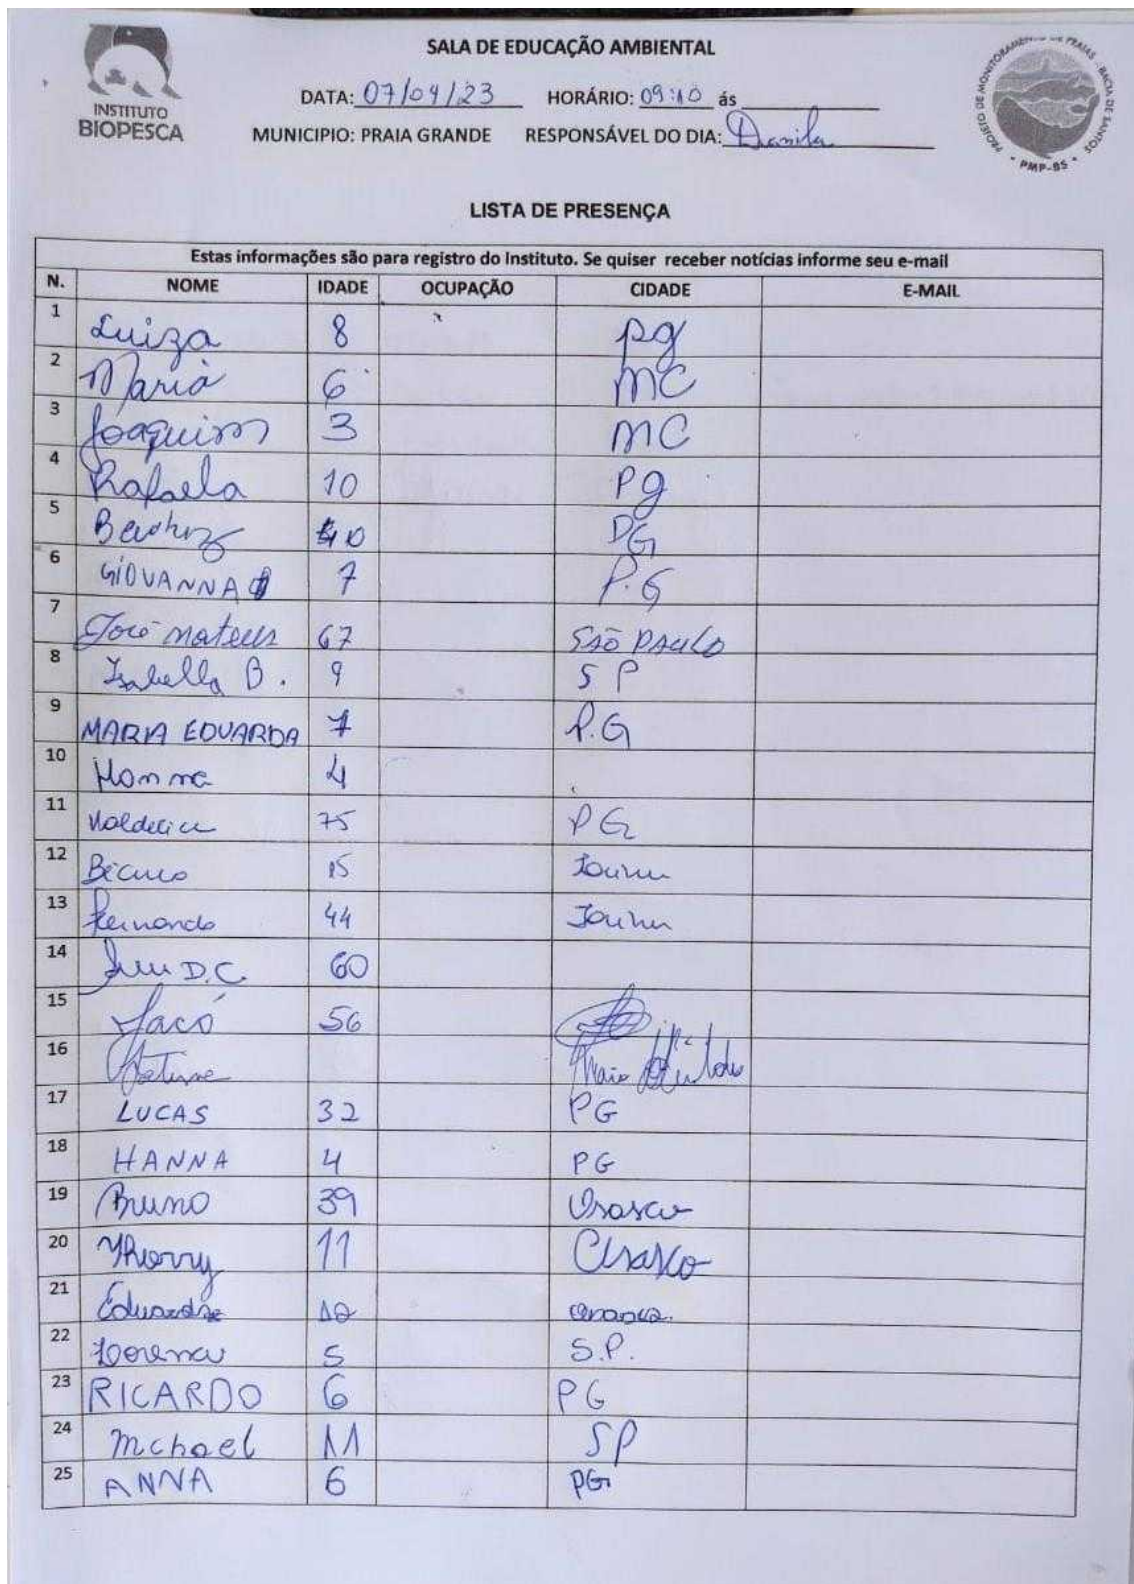 INSTITUTO
BIOPESCA
SALA DE EDUCAÇÃO AMBIENTAL
DATA: 07/04/23 HORÁRIO: 09:10 ás
MUNICIPIO: PRAIA GRANDE RESPONSÁVEL DO DIA: Danila
PROJETO DE MONITORAMENTO DE PRAIAS - BACIA DE SANTOS
• PMP-BS •
LISTA DE PRESENÇA
Estas informações são para registro do Instituto. Se quiser receber notícias informe seu e-mail
N. NOME IDADE OCUPAÇÃO CIDADE E-MAIL
1 Luiza 8 pg
2 Maria 6 MC
3 Joaquim 3 MC
4 Rafaela 10 Pg
5 Beatriz PG
6 GIOVANNA 7 P.G
7 José mateus 67 SÃO PAULO
8 Isabella B. 9 SP
9 MARIA EDUARDA 7 P.G
10 4
11 75 PG
12 15
13 Fernando 44
14 D.C. 60
15 Jacó 56
16
17 LUCAS 32 PG
18 HANNA 4 PG
19 Bruno 39 Osasco
20 Thierry 11 Osasco
21 10 osasco.
22 Lorena 5 S.P.
23 RICARDO 6 PG
24 Mchael 11 SP
25 ANNA 6 PG